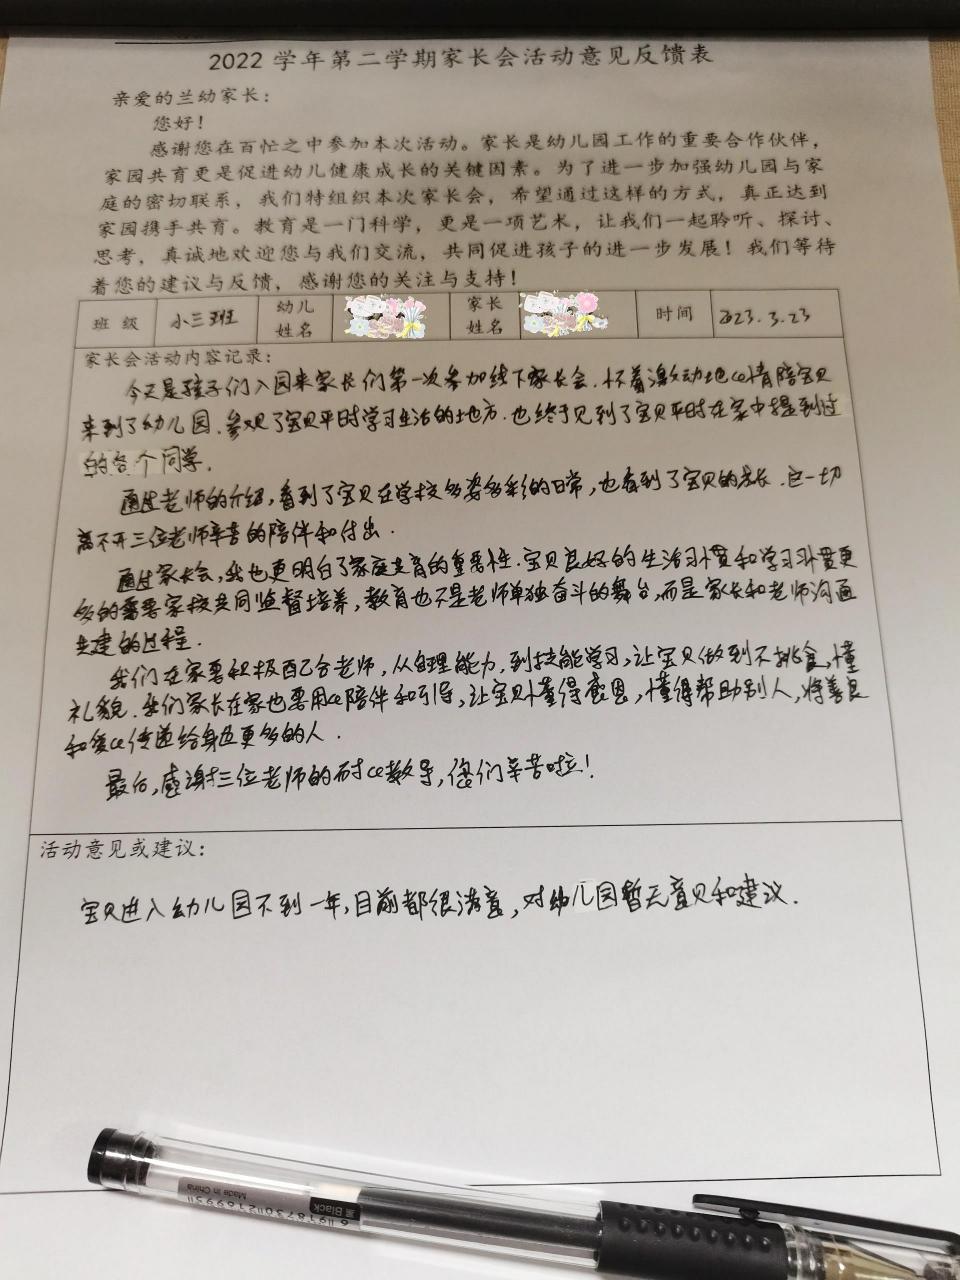 2022 学年第二学期家长会活动意见反馈表
亲爱的兰幼家长：
您好！
感谢您在百忙之中参加本次活动。家长是幼儿园工作的重要合作伙伴，
家园共育更是促进幼儿健康成长的关键因素。为了进一步加强幼儿园与家
庭的密切联系，我们特组织本次家长会，希望通过这样的方式，真正达到
家园携手共育。教育是一门科学，更是一项艺术，让我们一起聆听、探讨、
思考，真诚地欢迎您与我们交流，共同促进孩子的进一步发展！我们等待
着您的建议与反馈，感谢您的关注与支持！
班级 小三班 幼儿姓名 家长姓名 时间 2023.3.23
家长会活动内容记录：
今天是孩子们入园来家长们第一次参加线下家长会.怀着激动地心情陪宝贝
来到了幼儿园.参观了宝贝平时学习生活的地方.也终于见到了宝贝平时在家中提到过
的各个同学.
通过老师的介绍,看到了宝贝在学校多姿多彩的日常,也看到了宝贝的成长.这一切
离不开三位老师辛苦的陪伴和付出.
通过家长会,我也更明白了家庭教育的重要性.宝贝良好的生活习惯和学习习惯更
多的需要家校共同监督培养,教育也不是老师单独奋斗的舞台,而是家长和老师沟通
共建的过程.
我们在家要积极配合老师,从自理能力,到技能学习,让宝贝做到不挑食,懂
礼貌.我们家长在家也要用心陪伴和引导,让宝贝懂得感恩,懂得帮助别人,将善良
和爱心传递给身边更多的人.
最后,感谢三位老师的耐心教导,您们辛苦啦!
活动意见或建议：
宝贝进入幼儿园不到一年,目前都很满意,对幼儿园暂无意见和建议.
黑 Black
Made in China